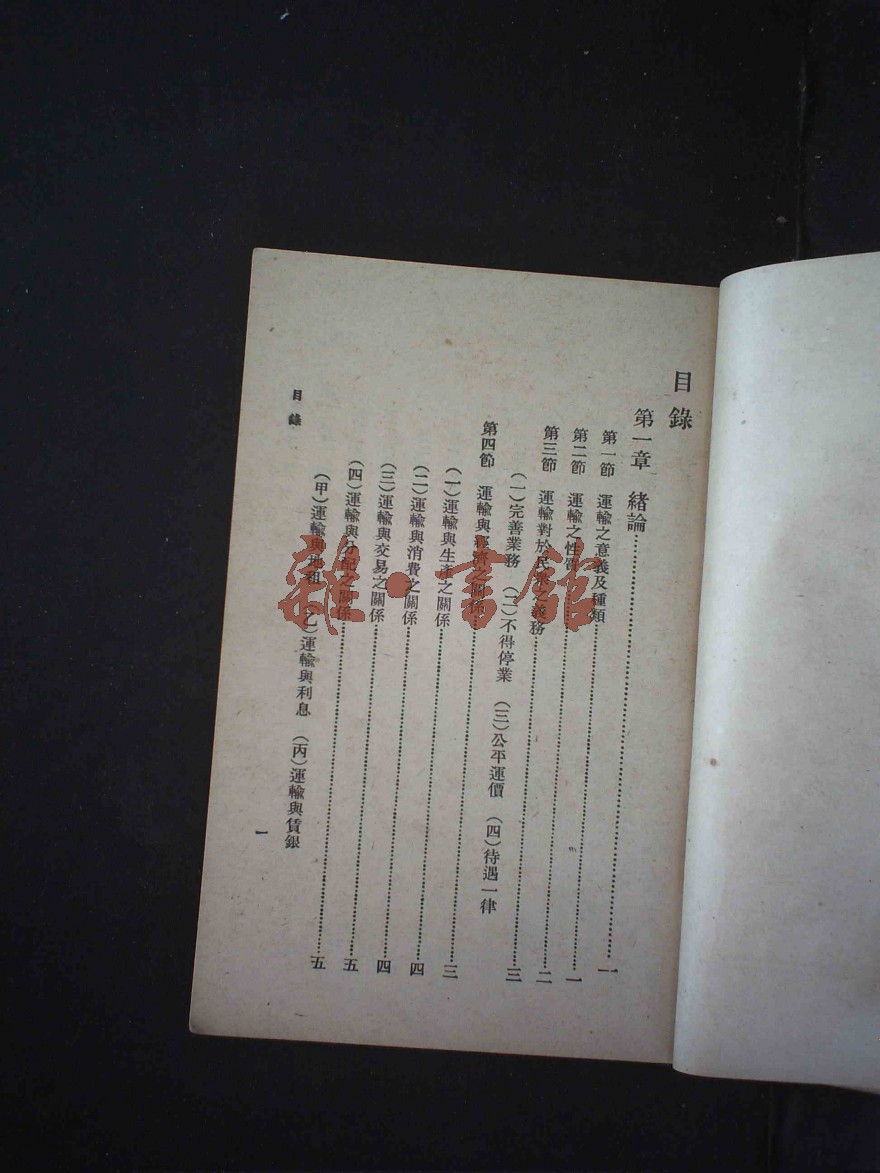 目錄
第一章 緒論……一
第一節 運輸之意義及種類……一
第二節 運輸之性質……二
第三節 運輸對於民眾之義務……三
(一)完善業務 (二)不得停業 (三)公平運價 (四)待遇一律
第四節 運輸與經濟之關係……三
(一)運輸與生產之關係……四
(二)運輸與消費之關係……四
(三)運輸與交易之關係……五
(四)運輸與分配之關係……五
(甲)運輸與地租 (乙)運輸與利息 (丙)運輸與賃銀
目錄
一
雜·書館